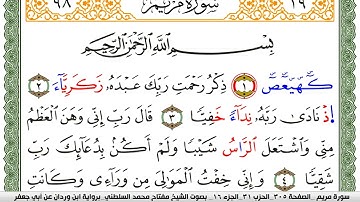 ٩٨ سورة مريم ١٩
بِسْمِ اللَّهِ الرَّحْمَٰنِ الرَّحِيمِ
كٓهيعٓصٓ ١ ذِكْرُ رَحْمَتِ رَبِّكَ عَبْدَهُ زَكَرِيَّآءَ ٢
إِذْ نَادَىٰ رَبَّهُ نِدَآءً خَفِيًّا ٣ قَالَ رَبِّ إِنِّي وَهَنَ الْعَظْمُ
مِنِّي وَاشْتَعَلَ الرَّاسُ شَيْبًا وَلَمْ أَكُنۢ بِدُعَآئِكَ رَبِّ
شَقِيًّا ٤ وَإِنِّي خِفْتُ الْمَوَٰلِيَ مِن وَرَآءِي وَكَانَتِ
سورة مريم الصفحة ٣٠٥ الحزب ٣١ الجزء ١٦ بصوت الشيخ مفتاح محمد السلطني برواية ابن وردان عن أبي جعفر